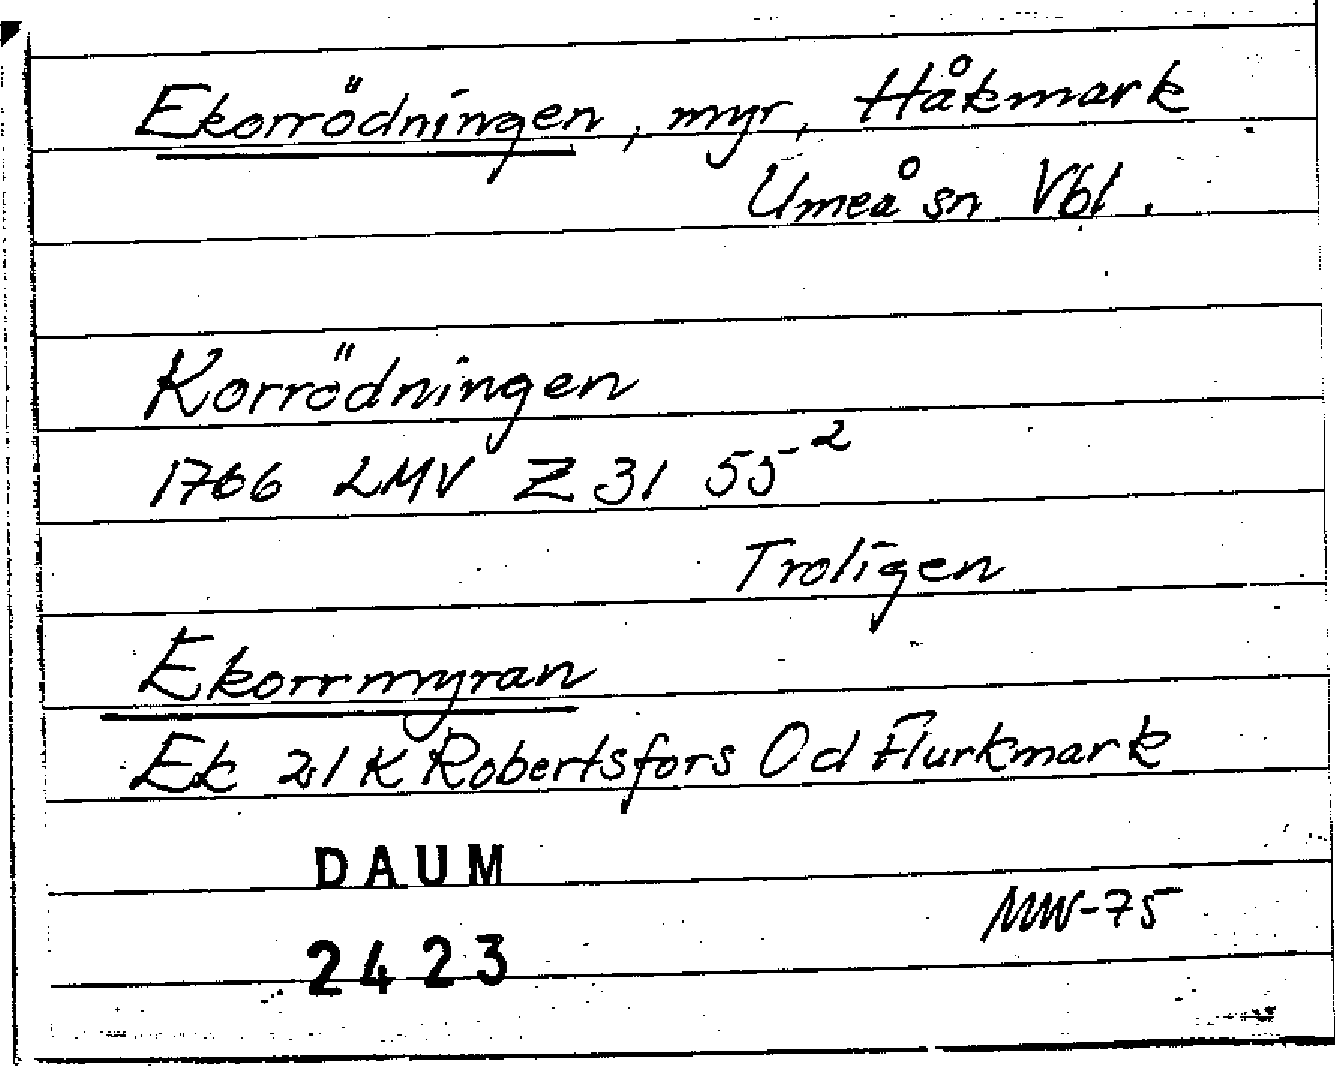 Ekorrödningen, myr, Håkmark
Umeå sn Vbl.
Korrödningen
1766 LMV Z 31 55²
Troligen
Ekorrmyran
Ek 21 K Robertsfors Od Flurkmark
DAUM
MW-75
2423